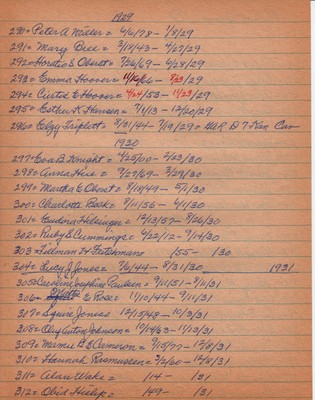 1929
290= Peter A Miller = 4/6/78 - 7/8/29
291= Mary Bree = 3/18/43 - 4/27/29
292= Horatio S Oberst = 7/26/69 - 4/28/29
293= Emma Hoover= 11/10/66 - 8/23/29
294= Curtis E Hoover = 4/24/53 - 11/23/29
295= Esther K Hansen = 7/1/13 - 12/20/29
296= Elzy Triplett = 8/31/44 - 7/19/29 = GAR D 7 Kan Cav
1930
297= Eva B Knight = 4/25/00 - 2/23/30
298= Anna Hue = 7/27/69 - 3/29/30
299= Martha E Oberst = 9/19/49 - 5/1/30
300= Charlotte Beck = 8/11/56 - 4/1/30
301= Eudora Hilsinger = 12/13/57 - 8/26/30
302= Ruby E Cummings = 4/22/12 - 9/14/30
303= Tilman H Fretchmans /55 - /30
304= Lucy J Jones = 7/6/44 - 8/31/30 1931
305= Caroline Josephine Paulsen = 9/11/51 - 9/11/31
306= E Rose = 11/10/44 - 9/11/31
307= Squire Jones= 12/15/48 - 10/3/31
308= Oley Anton Johnson = 10/19/63 - 11/23/31
309= Mamie B E Cameron = 9/15/77 - 12/8/31
310= Hannah Rasmussen = 3/2/60 - 12/8/31
311= Alan Wake = /14 - /31
312= Obid Hislip = /49 - /31